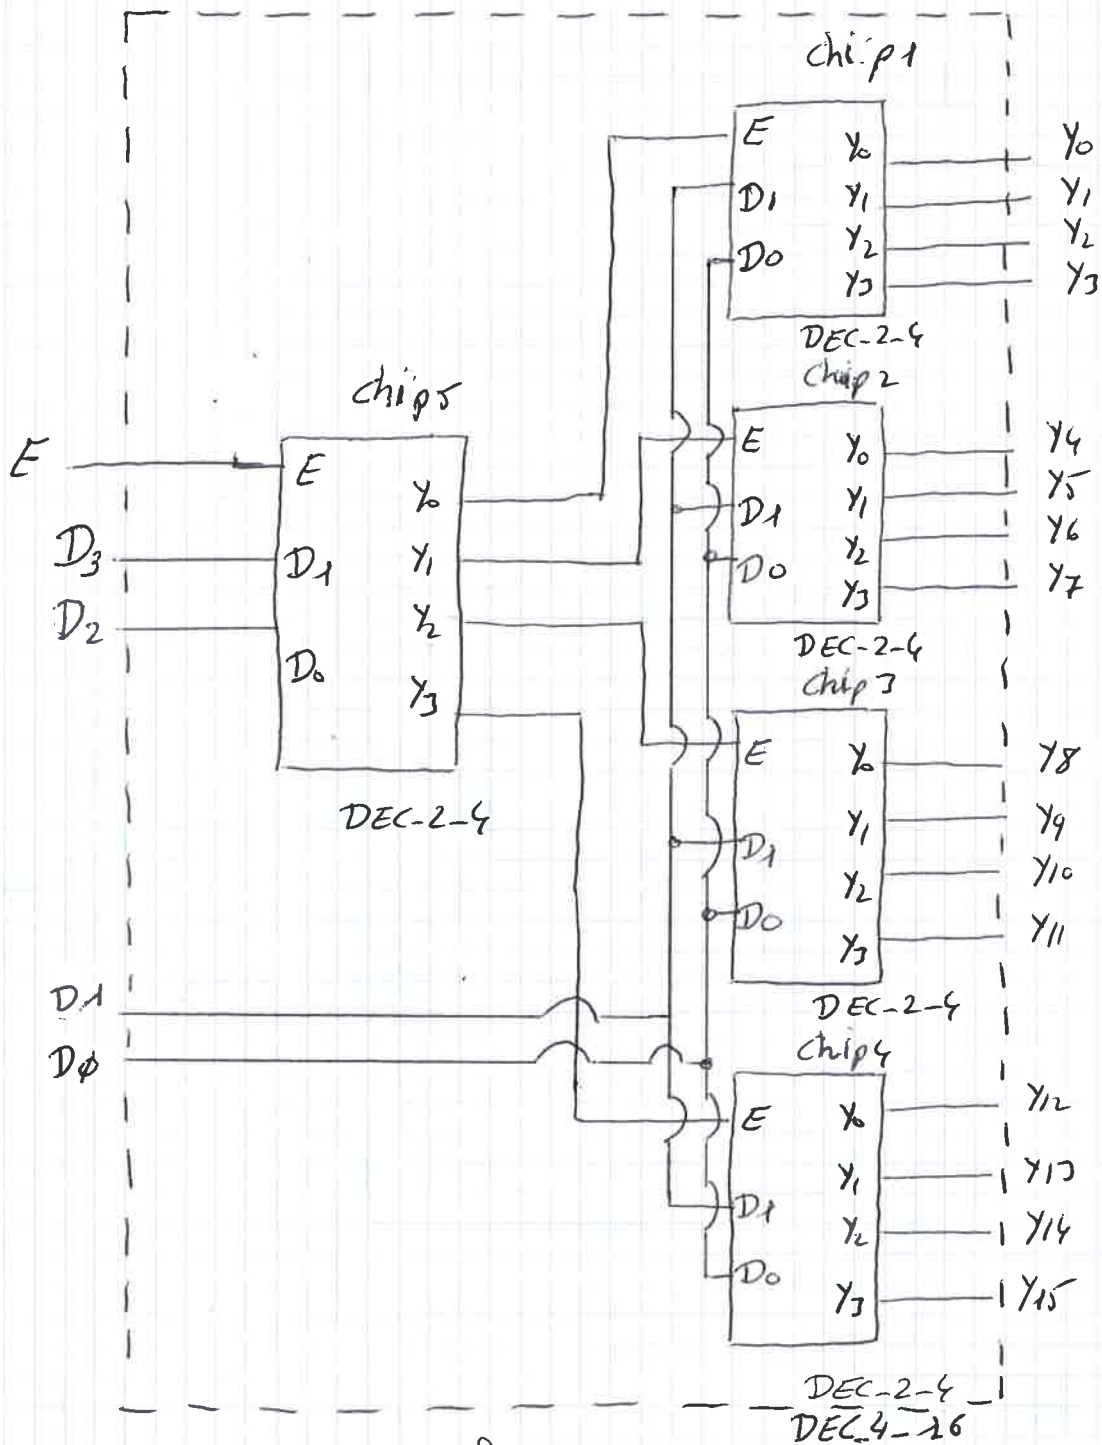 chip1
E
D1
D0
Y0
Y1
Y2
Y3
Y0
Y1
Y2
Y3
DEC-2-4
Chip2
E
D1
D0
Y0
Y1
Y2
Y3
Y4
Y5
Y6
Y7
DEC-2-4
Chip5
E
D3
D2
E
D1
D0
Y0
Y1
Y2
Y3
DEC-2-4
Chip3
E
D1
D0
Y0
Y1
Y2
Y3
Y8
Y9
Y10
Y11
DEC-2-4
D1
Dφ
Chip4
E
D1
D0
Y0
Y1
Y2
Y3
Y12
Y13
Y14
Y15
DEC-2-4
DEC_4_16